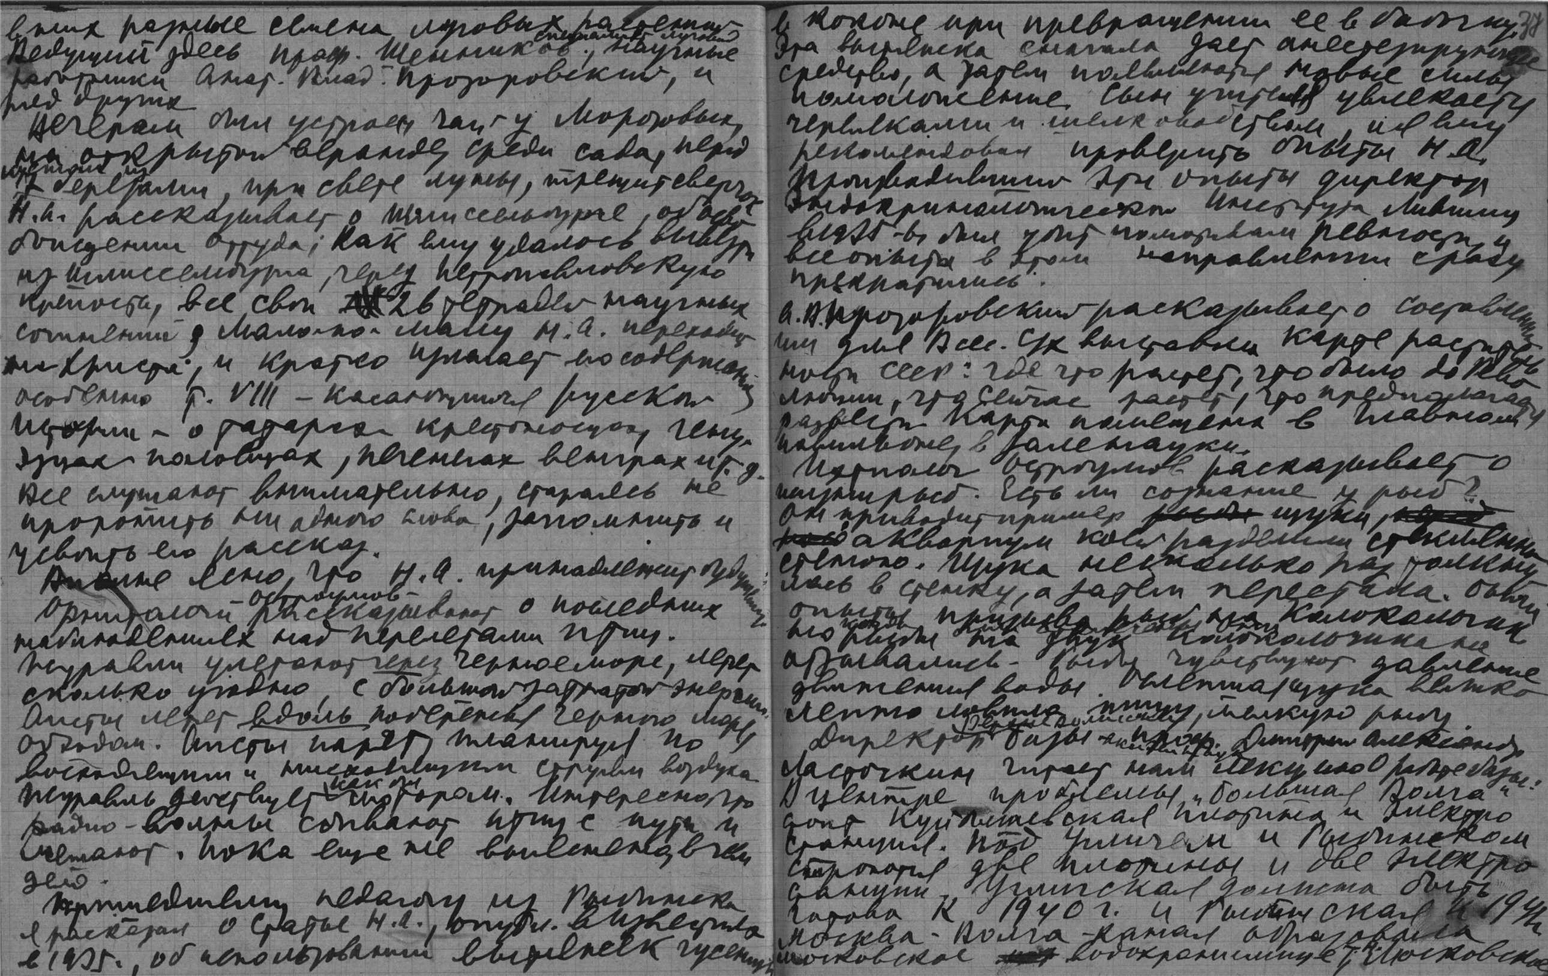 в них разные семена луговых растений
Ведущий здесь проф. Шенников, специалист луговод, научные
работники Анат. Влад. Прозоровский, и
ряд других
Вечером был устроен чай у Морозовых,
на открытой веранде, среди сада, перед
березами, при свете луны, трещит сверчок
Н.А. рассказывает о Шлиссельбурге, об освобо
бождении оттуда; как ему удалось вывезти
из Шлиссельбурга, через Петропавловскую
крепость, все свои 26 тетрадей научных
сочинений, Мало-по-малу Н.А. переходит
на Христа, и кратко излагает по содержанию
особенно т. VIII – касающийся русской
истории – о татарах крестоносцах, генуэ
эзцах половцах, печенегах венграх и т.д.
Все слушают внимательно, стараясь не
проронить ни одного слова, запомнить и
усвоить его рассказ.
ясно, что Н.А. принадлежит будущему
Орнитологи рассказывают о последних
наблюдениях над перелетами птиц.
Журавли улетают через Черное море, летят
сколько угодно, с большой затратой энергии.
Аисты летят вдоль побережья Черного моря
обходом. Аисты парят, планируя по
восходящим и нисходящим струям воздуха
Журавль действует как бы мотором. Интересно что
радио-волны сбивают птиц с пути и
. Пока еще не выяснено, в чем
дело.
Пришедшему педагогу из Рыбинска
я рассказал о статье Н.А., опубл. в Известиях
в 1935 г., об использовании вытяжек гусениц
в коконе при превращении ее в бабочку, 38
Эта вытяжка сначала дает анестезирующее
средство, а затем появляются новые силы,
помоложение. Сын учителя увлекается
червяками и шелководством, и я ему
рекомендовал проверить опыты Н.А.
Производивший эти опыты директор
Эндокринологического Института
в 1935-ом был убит по мотивам ревности и
все опыты в этом направлении сразу
прекратились.
А.В. Прозоровский рассказывает о составлен
ии для Всес. Сх выставки карте раститель
ности СССР: где что растет, что было до Рево
люции, что сейчас растет, что предполагают
развести. Карта помещена в Главном
павильоне, в зале науки.
Ихтиолог Остроумов рассказывает о
рыб. Есть ли сознание у рыб?
он приводит пример щуки,
аквариум коей разделили стеклянной
стенкой. Щука несколько раз толкну
лась в стенку, а затем перестала.
опыты колокольчик
но рыбы на звук колокольчика не
отзывались – рыбы чувствуют давление
движения воды. щука
ловила мелкую рыбу.
Директор базы Дмитрий Александр.
Ласточкин читает нам лекцию о работе базы.
В центре проблемы "Большая Волга"
стоит Куйбышевская плотина и электро
станция. Под Угличем и Рыбинском
строятся две плотины и две электро
станции. Угличская должна быть
готова к 1940 г. и Рыбинская к 194
Москва-Волга-канал образовала
московское водохранилище